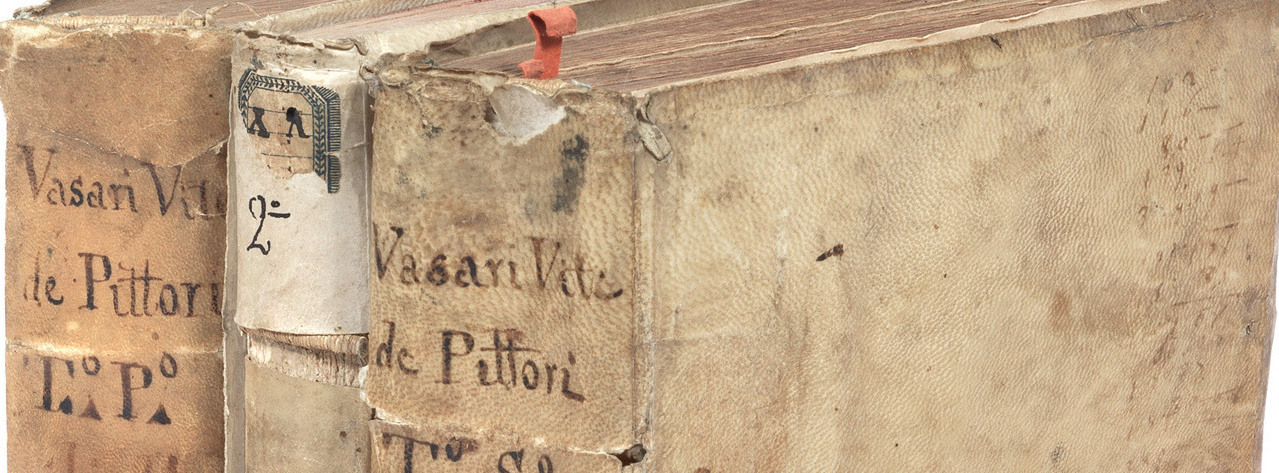 Vasari Vite
de Pittori
T.º P.º
X A
2º
Vasari Vite
de Pittori
T.º